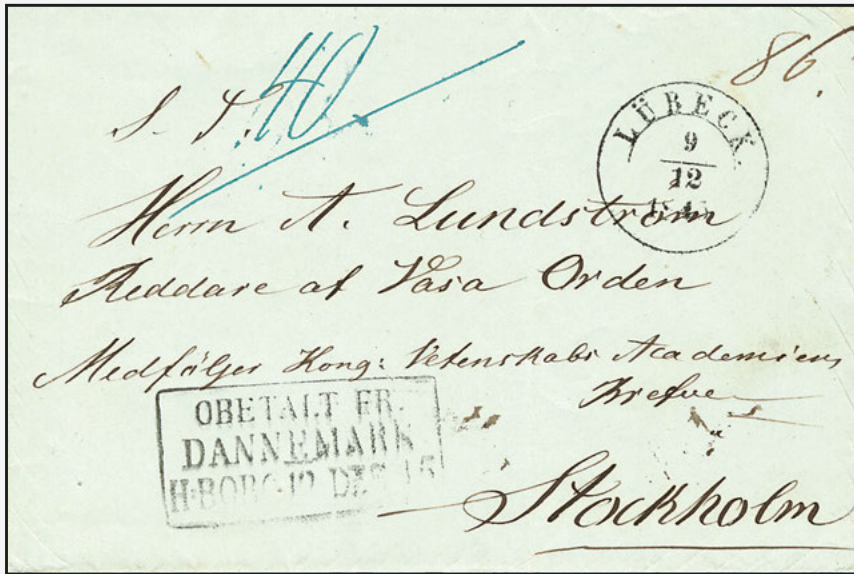 40
86.
S. T.
LÜBECK.
9
12
Herrn A. Lundström
Reddare af Vasa Orden
Medföljer Kong: Vetenskabs Academiens
Brefve
OBETALT FR.
DANNEMARK
H-BORG 12 DEC 45
Stockholm